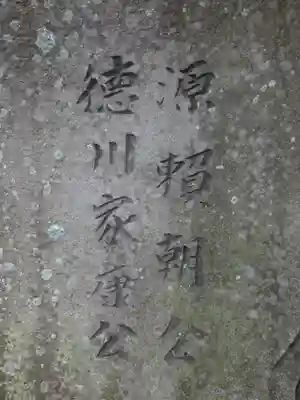 源頼朝公
徳川家康公